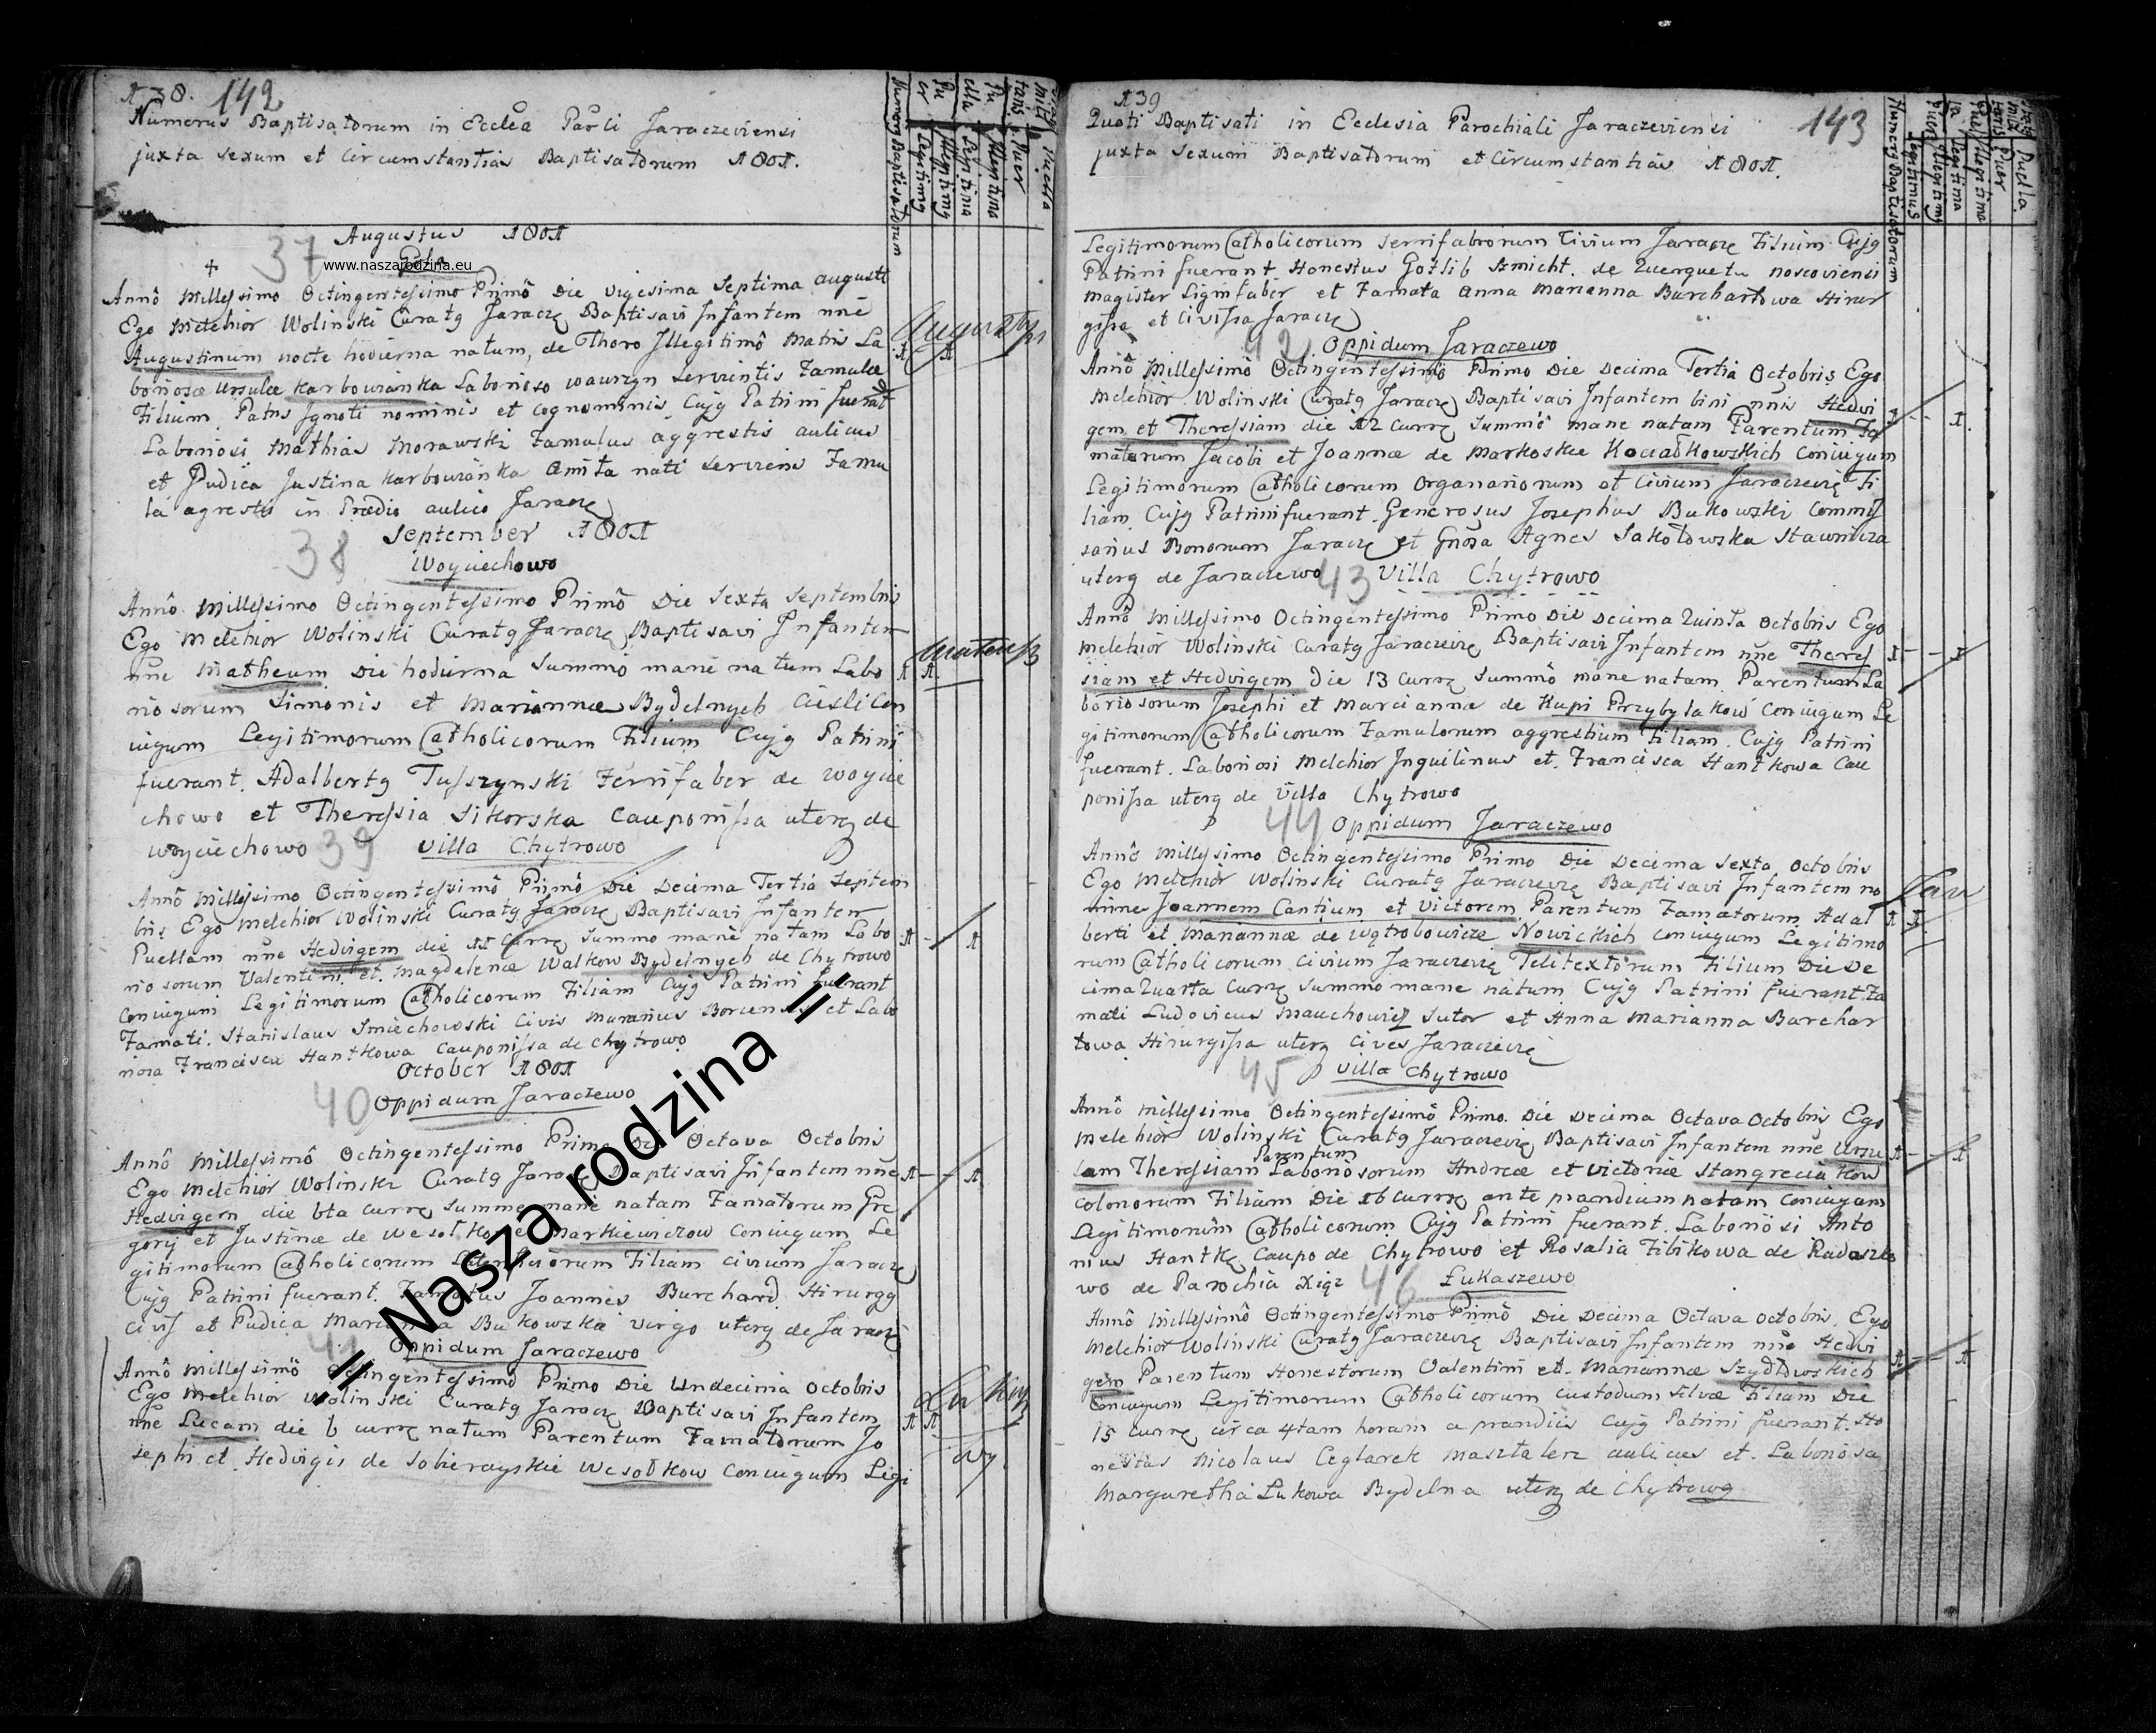 A 38. 142
Numerus Baptisatorum in Ecclea Paroli Jaraczeviensi
juxta sexum et Circumstantias Baptisatorum 1801.
37 Augustus 1801
www.naszarodzina.eu
Annô Millessimo Octingentessimo Primô Die Vigesima Septima Augusti
Ego Melchior Wolinski Curatg Jaracz Baptisavi Infantem nne
Augustinum nocte hodierna natum, de Thoro Illegitimô Matris La
boriosæ Ursulæ Karbowianka Laborioso Wawrzyn Servientis Famulæ
Filium Patris Ignoti nominis et cognominis Cujg Patrini fuerunt
Laboriosi Mathias Morawski Famulus aggrestis aulicus
et Pudica Justina Karbowianka Amita nati serviens Famu
la agrestis in Prædio aulico Jaracz
38 September 1801
Woyciechowo
Annô Millessimo Octingentessimo Primô Die Sexta Septembris
Ego Melchior Wolinski Curatg Jaracz Baptisavi Infantem
nne Matheum Die hodierna Summo mane natum Labo
riosorum Simonis et Mariannæ Bydelnych Cieslicon
iugum Legitimorum Catholicorum Filium Cujg Patrini
fuerant. Adalbertg Tuszynski Ferrifaber de Woycie
chowo et Theressia Sikorska Cauponissa uterq de
Woyciechowo 39 Villa Chytrowo
Annô Millessimo Octingentessimô Primô Die Decima Tertia Septem
bris Ego Melchior Wolinski Curatg Jaracz Baptisavi Infantem
Puellam nne Hedvigem die 11 Curre Summo mane natam Labo
riosorum Valentini et Magdalenæ Walkow Bydelnych de Chytrowo
Coniugum Legitimorum Catholicorum Filiam Cujg Patrini fuerant
Famati. Stanislaus Smiechowski Civis Murarius Borcensis et Labo
riosa Francisca Hantkowa Cauponissa de Chytrowo
October 1801
40 Oppidum Jaraczewo
Annô Millessimô Octingentessimo Primo Die Octava Octobris
Ego Melchior Wolinski Curatg Jaracz Baptisavi Infantem nne
Hedvigem die 6ta Curre Summo mane natam Famatorum Gre
gorij et Justinæ de Markiewiczow Coniugum Le
gitimorum Catholicorum Filiam Civium Jaracz
Cujg Patrini fuerant. Famatus Joannes Burchard Hirurgg
Civis et Pudica Marianna Bukowska Virgo uterq de Jaracz
Oppidum Jaraczewo
Annô Millessimô Octingentessimo Primo Die Undecima Octobris
Ego Melchior Wolinski Curatg Jaracz Baptisavi Infantem
nne Lucam die 6 curre natum Parentum Famatorum Jo
sephi et Hedvigis de Sobierayskie Wesołkow Coniugum Legi
= Nasza rodzina =
A 39 143
Quoti Baptisati in Ecclesia Parochiali Jaraczeviensi
juxta Sexum Baptisatorum et Circumstantias 1801.
Legitimorum Catholicorum Serrifabrorum Civium Jaracz Filium. Cujg
Patrini fuerant Honestus Gotlib Szmicht. de Querquetu noscoviensi
Magister Lignifaber et Famata Anna Marianna Burchartowa Hirur
gissa et Civissa Jaracz
42 Oppidum Jaraczewo
Annô Millessimô Octingentessimô Primo Die Decima Tertia Octobris Ego
Melchior Wolinski Curatg Jaracz Baptisavi Infantem bini nnis Hedvi
gem et Theressiam die 12 curre Summô mane natam Parentum Fa
matorum Jacobi et Joannæ de Markoskie Kociałkowskich Coniugum
Legitimorum Catholicorum Organariorum et Civium Jaraczewe Fi
liam. Cujg Patrini fuerant. Generosus Josephus Bukowski Commis
sarius Bonorum Jaracz et Gnosa Agnes Sakołowska Stawnicza
uterq de Jaraczewo 43 Villa Chytrowo
Annô Millessimo Octingentessimo Primo Die Decima Quinta Octobris Ego
Melchior Wolinski Curatg Jaraczewe Baptisavi Infantem nne Theres
siam et Hedvigem Die 13 curre Summô mane natam. Parentum La
boriosorum Josephi et Marciannæ de Kupi Przybylakow Coniugum Le
gitimorum Catholicorum Famulorum aggrestium Filiam. Cujg Patrini
fuerant. Laboriosi Melchior Inquilinus et. Francisca Hantkowa Cau
ponissa uterq de Villa Chytrowo
44 Oppidum Jaraczewo
Annô Millessimo Octingentessimo Primo Die Decima Sexta Octobris
Ego Melchior Wolinski Curatg Jaraczewe Baptisavi Infantem no
mine Joannem Cantium et Victorem Parentum Famatorum Adal
berti et Mariannæ de Wątrobowicze Nowickich Coniugum Legitimo
rum Catholicorum Civium Jaraczewe Telitextorum Filium Die De
cima Quarta Curre Summo mane natum Cujg Patrini fuerant Fa
mati Ludovicus Mauchowicz Sutor et Anna Marianna Burchar
towa Hirurgissa uterq Cives Jaraczewe
45 Villa Chytrowo
Annô Millessimo Octingentessimô Primo. Die Decima Octava Octobris Ego
Melchior Wolinski Curatg Jaraczewe Baptisavi Infantem nne Ursu
lam Theressiam Parentum Laboriosorum Andreæ et Victoriæ Stangreciakow
Colonorum Filiam Die 16 Curre ante prandium natam Coniugum
Legitimorum Catholicorum Cujg Patrini fuerant. Laboriosi Anto
nius Hantke Caupo de Chytrowo et Rosalia Filikowa de Radosze
wo de Parochia Xiąz 46 Łukaszewo
Annô Millessimô Octingentessimo Primô Die Decima Octava Octobris. Ego
Melchior Wolinski Curatg Jaraczewe Baptisavi Infantem nne Hedvi
gem Parentum Honestorum Valentini et. Mariannæ Szydłowskich
Coniugum Legitimorum Catholicorum Custodum Silvæ Filiam Die
15 curre circa 4tam horam a prandiis Cujg Patrini fuerant. Ho
nestus Nicolaus Ceglarek Masztalerz aulicus et. Laboriosa
Margaretha Lukowa Bydelna uterq de Chytrowo